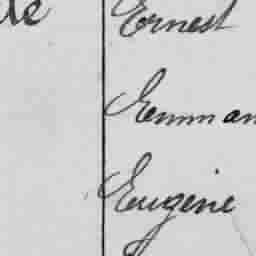 de Ernest
Emman
Eugène